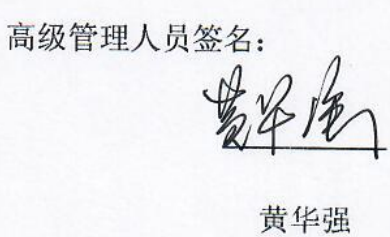 高级管理人员签名：
黄华强
黄华强